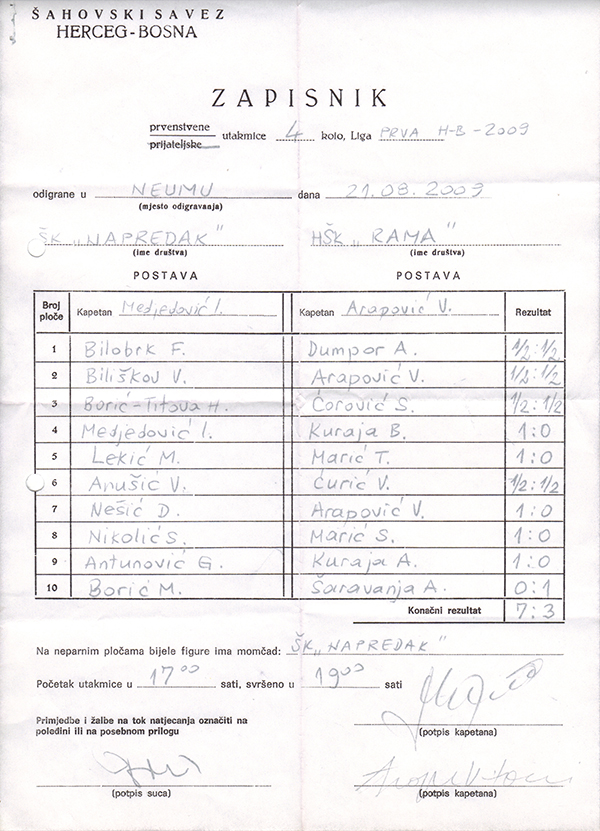 ŠAHOVSKI SAVEZ
HERCEG-BOSNA
ZAPISNIK
prvenstvene
prijateljske utakmice 4 kolo, Liga PRVA H-B-2009
odigrane u NEUMU dana 21.08.2009
(mjesto odigravanja)
ŠK „NAPREDAK" HŠK „RAMA"
(ime društva) (ime društva)
POSTAVA POSTAVA
Broj ploče Kapetan Medjedović I. Kapetan Arapović V. Rezultat
1 Bilobrk F. Dumpor A. 1/2:1/2
2 Biliškov V. Arapović V. 1/2:1/2
3 Borić-Titova H. Ćorović S. 1/2:1/2
4 Medjedović I. Kuraja B. 1:0
5 Lekić M. Marić T. 1:0
6 Anušić V. Ćurić V. 1/2:1/2
7 Nešić D. Arapović V. 1:0
8 Nikolić S. Marić S. 1:0
9 Antunović G. Kuraja A. 1:0
10 Borić M. Šaravanja A. 0:1
Konačni rezultat 7:3
Na neparnim pločama bijele figure ima momčad: ŠK „NAPREDAK"
Početak utakmice u 17 00 sati, svršeno u 19 00 sati
(potpis kapetana)
Primjedbe i žalbe na tok natjecanja označiti na
poleđini ili na posebnom prilogu
(potpis suca) (potpis kapetana)